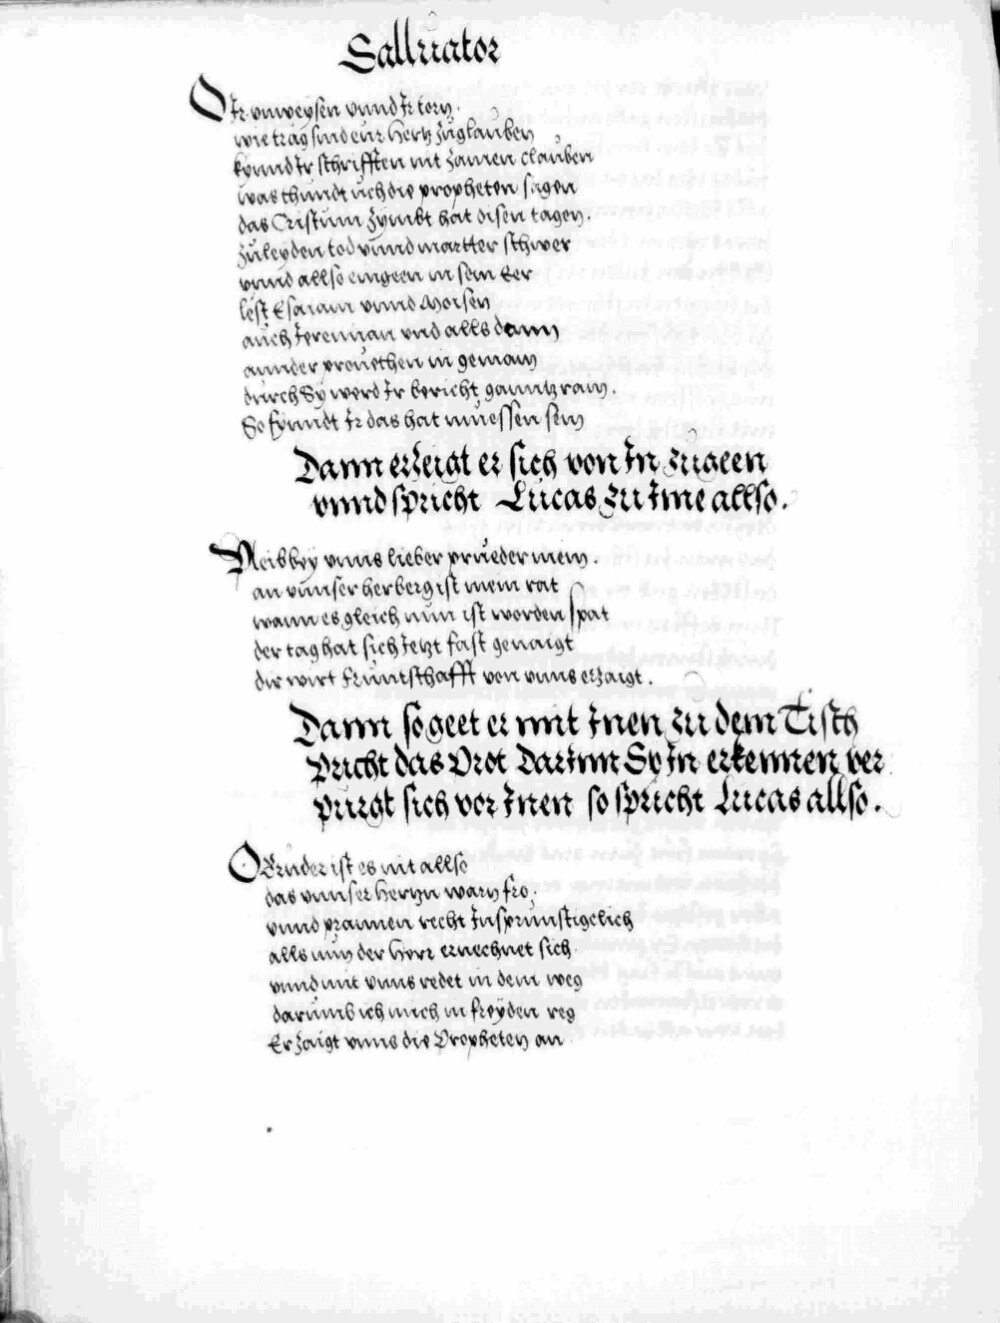 Salluator
O Ir vnweysen vnnd Ir torn.
wie träg sind eur hertz zuglauben
kynnd Ir schrifften nit zamen clauben
was thundt üch die propheten sagen
das Cristum zymbt hat disen tagen.
zuleyden tod vnnd martter schwer
vnnd allso eingeen in sein Eer
lest Esaiam vnnd Moisen
auch Ieremian vnd alls dann
annder prouethen in gemain
durch Sy werd Ir bericht ganntz rain.
So fynndt Ir das hat muessen sein
Dann erzeigt er sich von In zugeen
vnnd spricht Lucas zu Ime allso.
Bleib bey vnns lieber prueder mein.
an vnnser herberg ist mein rat
wann es gleich nun ist worden spat
der tag hat sich Ietzt fast genaigt
dir wirt fruntschafft von vnns erzaigt.
Dann so geet er mit Inen zu dem Tisch
Pricht das Prot Darinn Sy In erkennen ver
pürgt sich vor Inen so spricht Lucas allso.
O Bruder ist es nit allso
das vnnser hertzn warn fro.
vnnd prannen recht Inprunstigelich
alls nun der herr ernechnet sich
vnnd mit vnns redet in dem weg
darumb ich mich in freyden reg
Er zaigt vnns die Propheten an